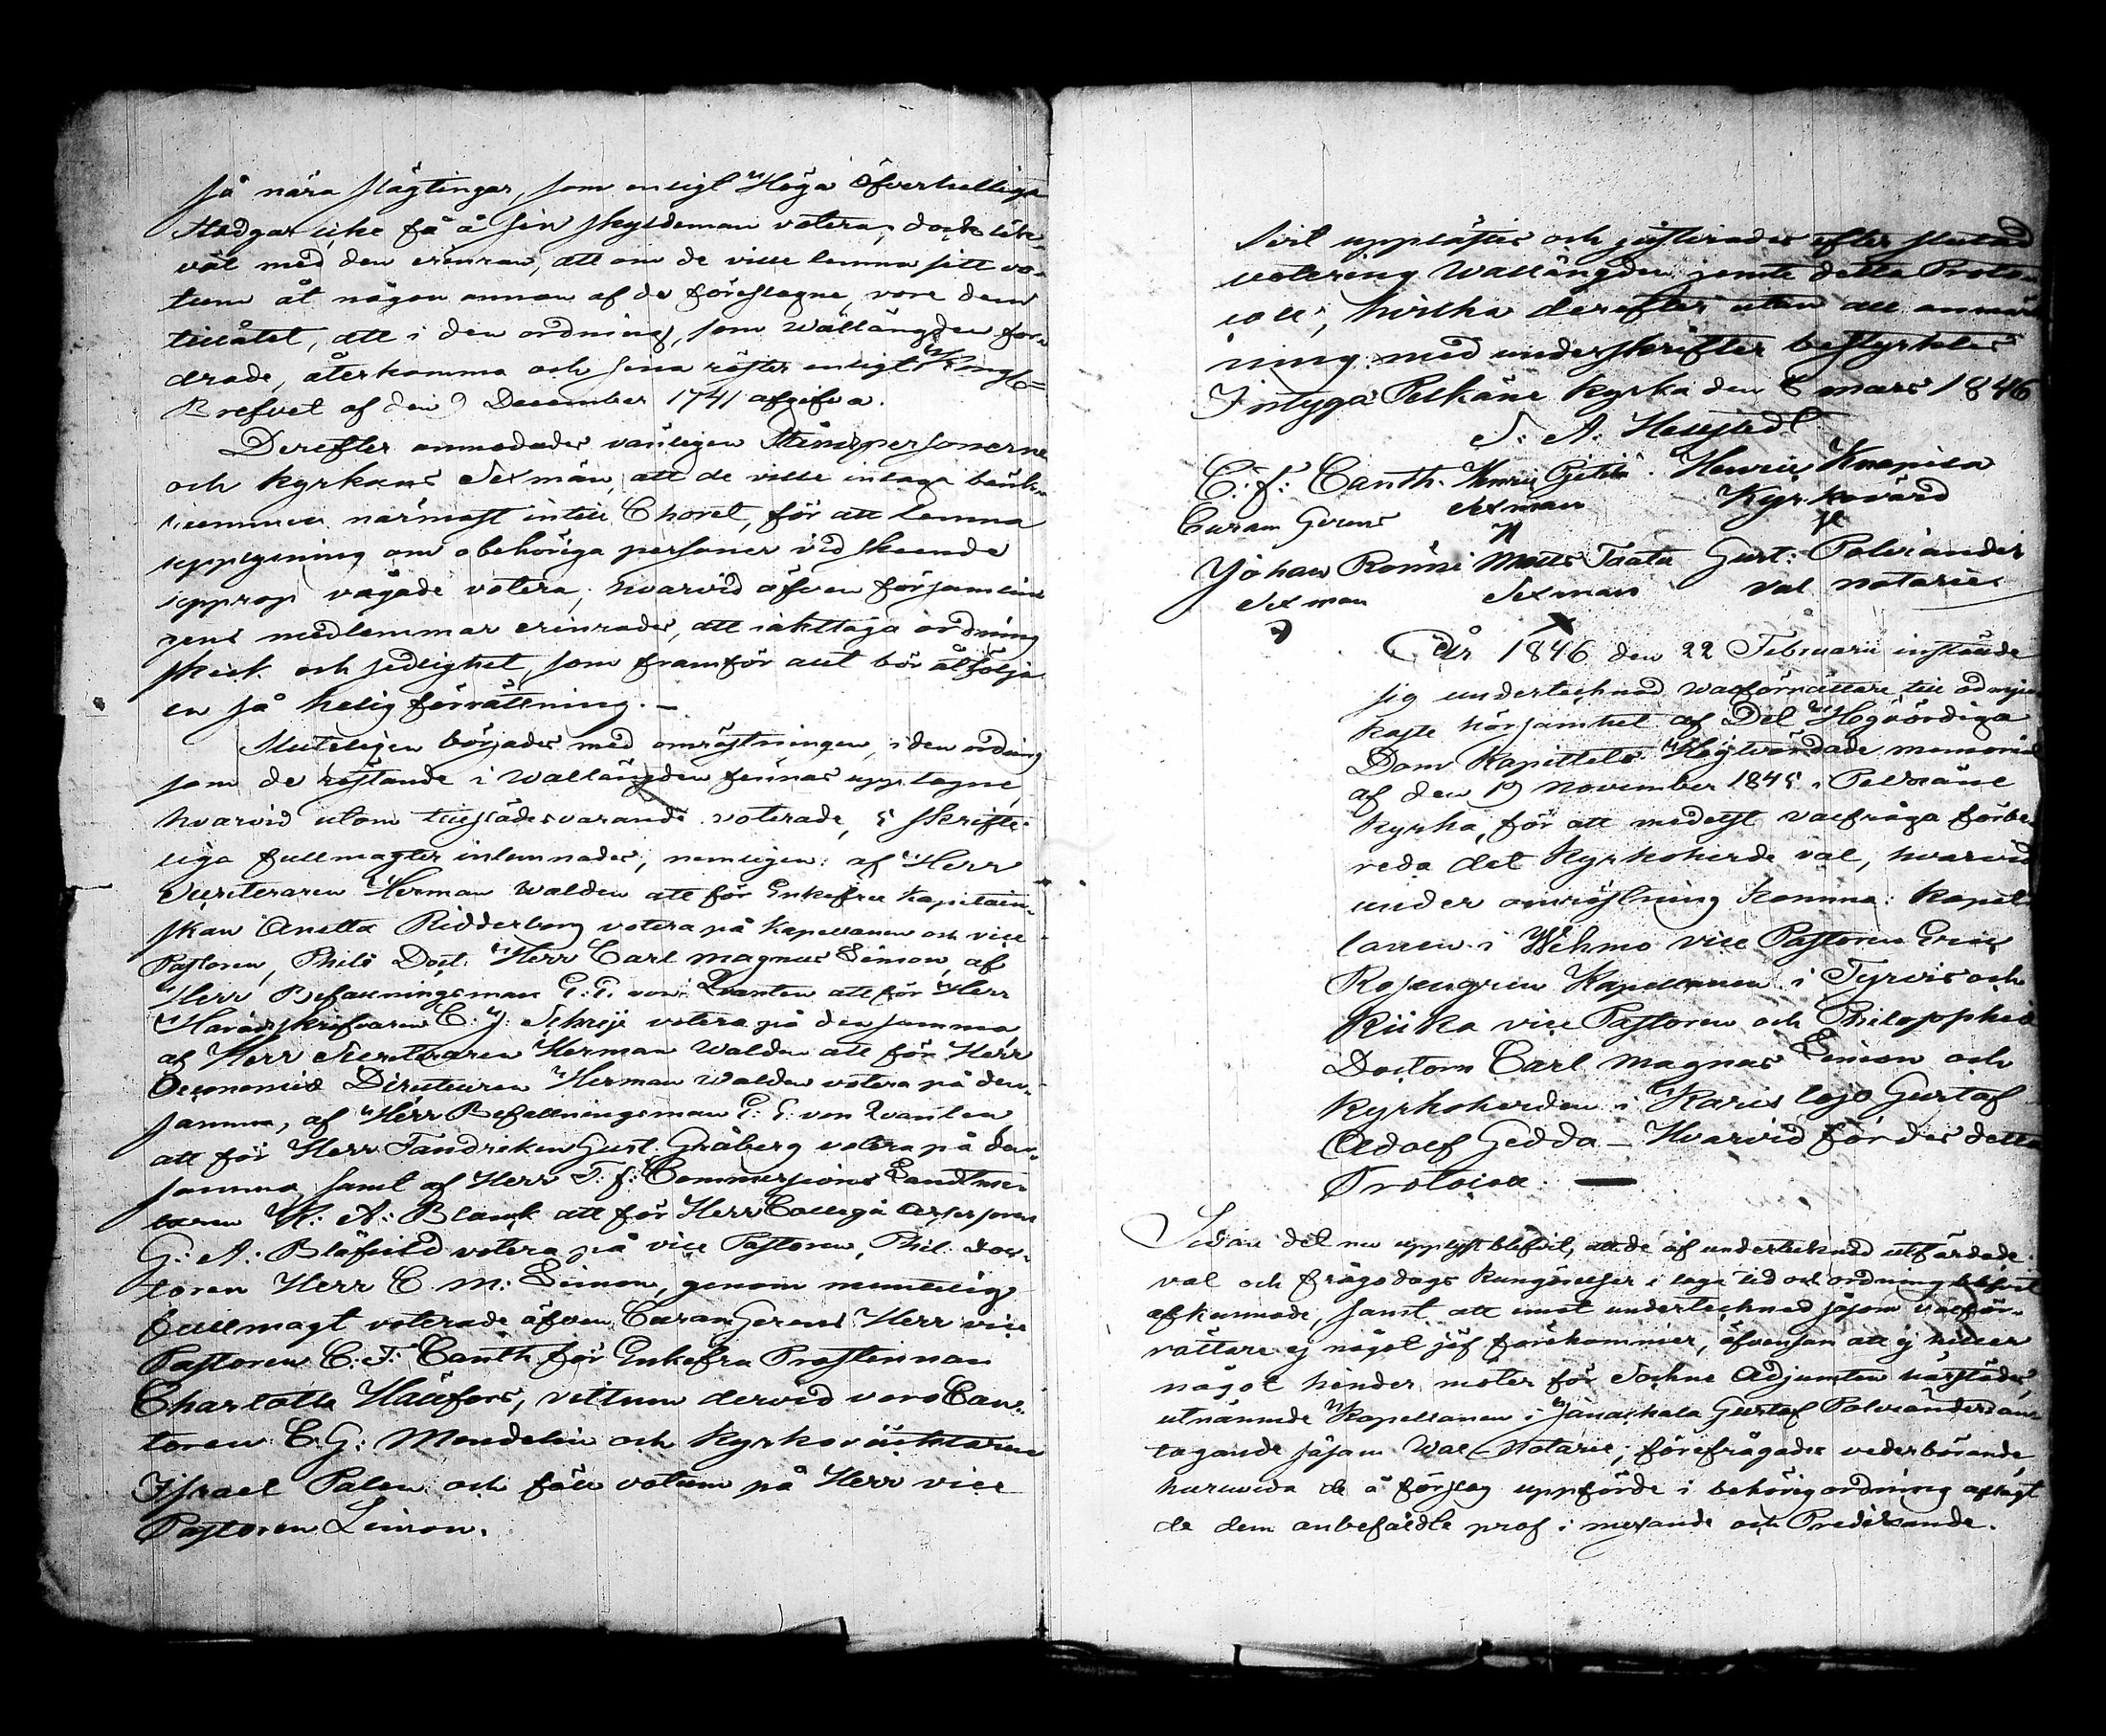 så nära slägtingar, som enligt Höga Öfverhetliga
stadgar icke få å sin skyldeman votera, dock lik-
väl med den erinran, att om de ville lemna sitt vo-
tum åt någon annan af de föreslagne, vore dem
tillåtet, att i den ordning, som Wallängden for-
drade, återkomma och sina röster enligt Kongl:
Brefvet af den 9 December 1741 afgifva.
Derefter anmodades vanligen Ståndspersonerne
och kyrkans Sexmän, att de ville intaga bänk-
rummen närmast intill Choret, för att lemna
upplysning om obehöriga personer vid skeende
upprop vågade votera, hvarvid äfven församlin
gens medlemmar erinrades, att iakttaga ordning
skick och sedlighet, som framför allt bör åtfölja
en så helig förrättning. –
Sluteligen börjades med omröstningen, i den ordning
som de röstande i Wallängden finnas upptagne,
hvarvid utom tillstädesvarande voterade, 5 skrift-
liga fullmagter inlemnades, nemligen: af Herr
Secreteraren Herman Walden att för Enkefru Kapitain-
skan Anetta Ridderborg votera på Kapellanen och vice
Pastoren, Philo Doct. Herr Carl Magnus Limon, af
Herr Befallningsman G. G. von Qvanten att för Herr
Häradsskrifvaren C. J. votera på den samma
af Herr Secreteraren Herman Walden att för Herr
Oeconomie Directeuren Herman Walden votera på den-
samma, af Herr Befallningsman G. G. von Qvanten
att för Herr Fändriken Gust. Gråberg votera på den-
samma, samt af Herr T. f. Commissions Landtmä-
taren K. A. Blank att för Herr Collegii Assessoren
G. A. Blåfield votera på vice Pastoren, Phil. Doc-
toren Herr C. M. Limon, genom muntelig
fullmagt voterade äfven Curam Gerens Herr vice
Pastoren C. F. Canth för Enkefru Prostinnan
Charlotta Hällfors, vittnen dervid voro Can-
toren C. G. Mendelin och Kyrkoväktaren
Israel Palen och föll votum på Herr vice
Pastoren Limon.
Sist upplästes och justerades efter slutad
votering Wallängden jemte detta Proto-
coll, hvilka derefter utan all anmärk
ning med underskrifter bestyrktes
Intyga Pelkäne kyrka den 8 mars 1846
C. F. Canth. Henric Henric Knapila
Curam Gerens Sexman Kyrkovärd
Johan Rönni Matts Taata Gust: Polviander
Sexman Sexman val notarie
År 1846 den 22 Februarii inställde
sig undertecknad valförrättare till ödmju
kaste hörsamhet af Det Högvördiga
Dom Kapitlets Högtvördade memorial
af den 19 November 1845 i Pelkäne
kyrka, för att medelst valfråga förbe-
reda det Kyrkoherde val, hvarvid
under omröstning komma: Kapel-
lanen i Wehmo vice Pastoren Eric
Rosengren Kapellanen i Tyrvis och
Kiika vice Pastoren och Philosophiæ
Doctorn Carl Magnus Limon och
Kyrkoherden i Karislojo Gustaf
Adolf Gedda – Hvarvid fördes detta
Protocoll. –
Sedan det nu upplyst blifvit, att de af undertecknad utfärdade
val och frågodags kungörelser i laga tid och ordning blifvit
afkunnade, samt att emot undertecknad såsom valför-
rättare ej något jäf förekommer, äfvensom att ej heller
något hinder möter för Sockne Adjuncten härstädes,
utnämnde Kapellanen i Janackala Gustaf Polvianders an-
tagande såsom Wal-Notarie, förefrågades vederbörande,
huruvida de å förslag uppförde i behörig ordning aflagt
de dem anbefalde prof i mässande och Predikande.